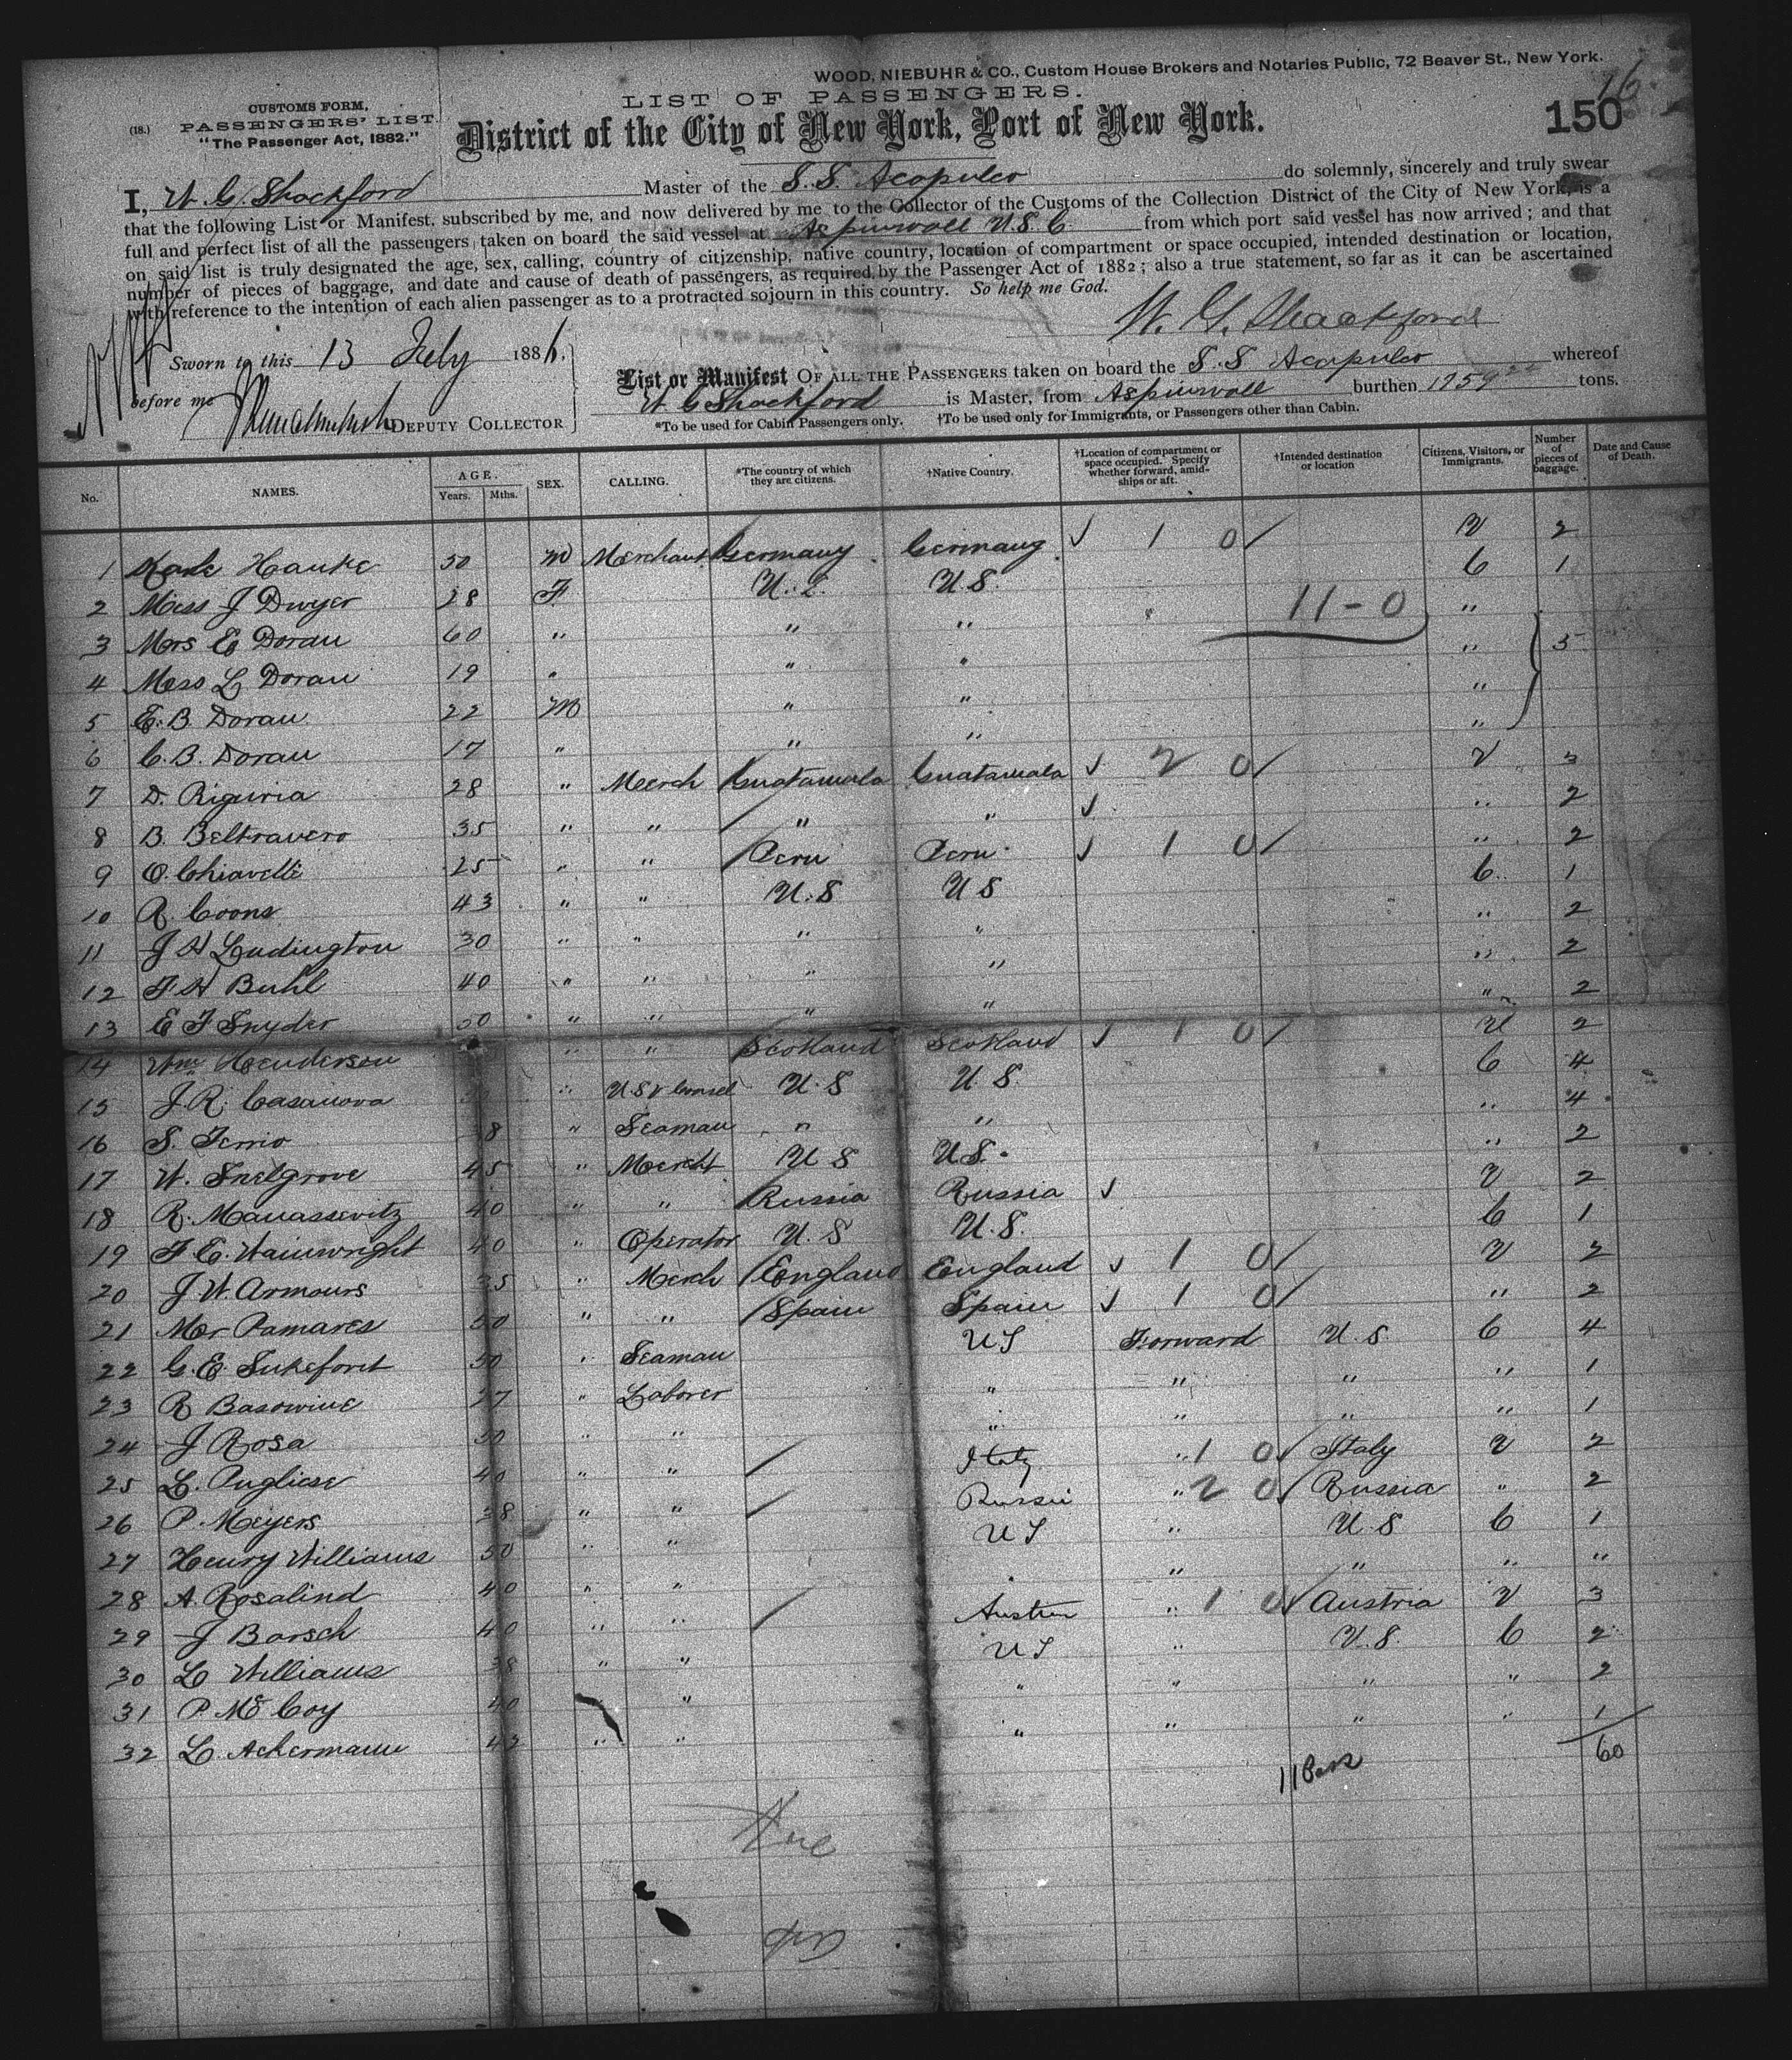 WOOD, NIEBUHR & CO., Custom House Brokers and Notaries Public, 72 Beaver St., New York.
16
(18.) CUSTOMS FORM,
PASSENGERS' LIST.
"The Passenger Act, 1882."
LIST OF PASSENGERS.
150
District of the City of New York, Port of New York.
I, W. G. Shackford Master of the S. S. Acapulco do solemnly, sincerely and truly swear
that the following List or Manifest, subscribed by me, and now delivered by me to the Collector of the Customs of the Collection District of the City of New York, is a
full and perfect list of all the passengers taken on board the said vessel at Aspinwall U. S. C. from which port said vessel has now arrived; and that
on said list is truly designated the age, sex, calling, country of citizenship, native country, location of compartment or space occupied, intended destination or location,
number of pieces of baggage, and date and cause of death of passengers, as required by the Passenger Act of 1882; also a true statement, so far as it can be ascertained
with reference to the intention of each alien passenger as to a protracted sojourn in this country. So help me God.
W. G. Shackford
Sworn to this 13 July 1886,
before me
DEPUTY COLLECTOR
List or Manifest OF ALL THE PASSENGERS taken on board the S. S. Acapulco whereof
W G Shackford is Master, from Aspinwall burthen tons.
*To be used for Cabin Passengers only. †To be used only for Immigrants, or Passengers other than Cabin.
No. NAMES. AGE. Years. Mths. SEX. CALLING. *The country of which they are citizens. †Native Country. †Location of compartment or space occupied. Specify whether forward, amidships or aft. †Intended destination or location Citizens, Visitors, or Immigrants. Number of pieces of baggage. Date and Cause of Death.
1 Hauke 50 M Merchant Germany Germany ✓ 1 0/ V 2
2 Miss J Dwyer 28 F U. S. U S. C 1
11-0
3 Mrs E Doran 60 " " " "
4 Miss L Doran 19 " " " " 5
5 E. B. Doran 22 M " " "
6 C. B. Doran 17 " " " "
7 D. Riguria 28 " Merch Guatamala Guatamala ✓ 2 0/ V 3
8 B. Beltravero 35 " " " " ✓ " 2
9 O. Chiavelli 25 " " Peru Peru ✓ 1 0/ " 2
10 R. Coons 43 " " U. S U S C 1
11 J H Ludington 30 " " " " " 2
12 F. H Buhl 40 " " " " " 2
13 E F Snyder 50 " " " " " 2
14 Wm Henderson " " Scotland Scotland ✓ 1 0/ V 2
15 J. R. Casanova " U. S V Consel U. S U. S. C 4
16 S. Ferrio 38 " Seaman " " " 4
17 W. Snelgrove 45 " Mercht U S U S. " 2
18 R. Manassevitz 40 " " Russia Russia ✓ V 2
19 F E. Wainwright 40 " Operator U. S U. S. C 1
20 J W. Armours 35 " Merch England England ✓ 1 0/ V 2
21 Mer Pamares 50 " " Spain Spain ✓ 1 0/ " 2
22 G. E. Sukeforet 50 " Seaman U S Forward U. S. C 4
23 R Basowine 27 " Laborer " " " " 1
24 J Rosa 50 " " " " " " 1
25 L. Pugliese 40 " " / Italy " 1 0/ Italy V 2
26 P. Meyers 38 " " / Russi " 2 0/ Russia " 2
27 Henry Williams 50 " " U S " U. S C 1
28 A. Rosalind 40 " " " " " " "
29 J Barsch 40 " " / Austria " 1 0/ Austria V 3
30 L Williams 38 " " U S " U. S. C 2
31 P. McCoy 40 " " " " " 2
32 L. Ackermann 42 " " " " " " 1
60